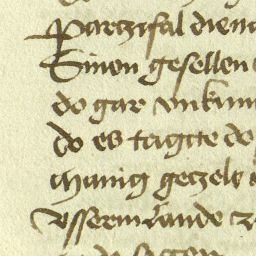 Partzifal dien
Sinen gesellen
do gar vnkun
do es tagte do
manig getzelt
Vsserm lande